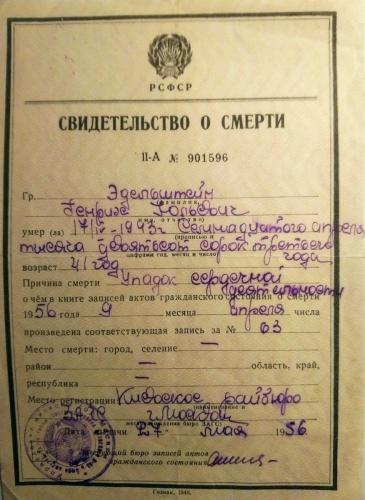 РСФСР
СВИДЕТЕЛЬСТВО О СМЕРТИ
II-А № 901596
Гр. Эдельштейн
(фамилия,
Генрих Вольевич
имя, отчество)
умер (ла) 17/IV-1943г Семнадцатого апреля
(прописью и
тысяча девятьсот сорок третьего
цифрами год, месяц и число)
года
возраст 41 год
Причина смерти Упадок сердечной
деятельности
о чём в книге записей актов гражданского состояния о смерти
1956 года 9 месяца апреля числа
произведена соответствующая запись за № 63
Место смерти: город, селение —
район — область, край,
республика —
Место регистрации Киевское райбюро
(наименование и
ЗАГС г. Москвы
местонахождение бюро ЗАГС)
Дата выдачи 27 мая 1956
Заведующий бюро записей актов
гражданского состояния
Гознак, 1948.